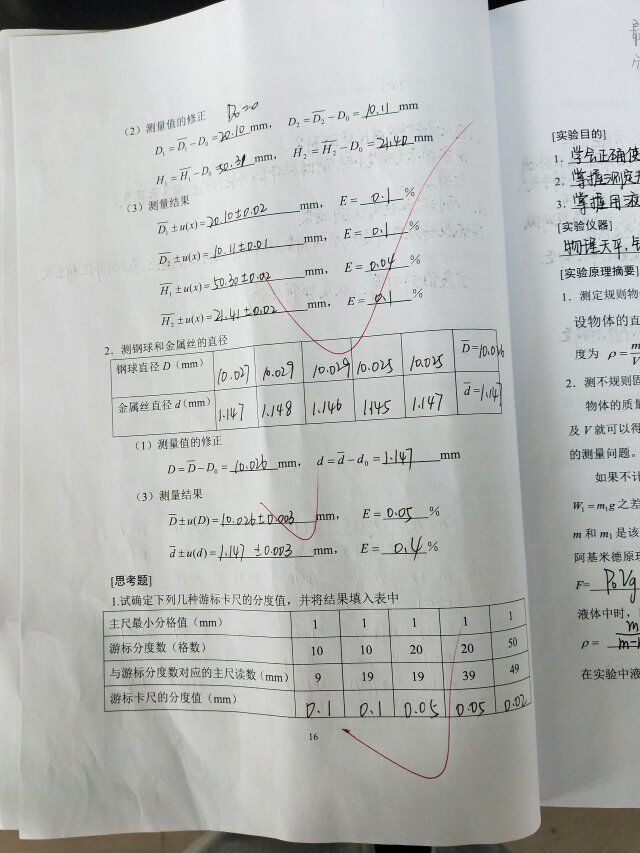 (2) 测量值的修正 D₀=0
D₁ = D̅₁ - D₀ = 20.10 mm， D₂ = D̅₂ - D₀ = 10.11 mm
H₁ = H̅₁ - D₀ = 50.30 mm， H₂ = H̅₂ - D₀ = 21.40 mm
(3) 测量结果
D̅₁ ± u(x) = 20.10±0.02 mm， E = 0.1 %
D̅₂ ± u(x) = 10.11±0.01 mm， E = 0.1 %
H̅₁ ± u(x) = 50.30±0.02 mm， E = 0.04 %
H̅₂ ± u(x) = 21.41±0.02 mm， E = 0.1 %
2．测钢球和金属丝的直径
钢球直径 D（mm） 10.027 10.029 10.029 10.025 10.025 D̅=10.026
金属丝直径 d（mm） 1.147 1.148 1.146 1.145 1.147 d̅=1.147
(1) 测量值的修正
D = D̅ - D₀ = 10.026 mm， d = d̅ - d₀ = 1.147 mm
(3) 测量结果
D̅ ± u(D) = 10.026±0.003 mm， E = 0.05 %
d̅ ± u(d) = 1.147 ±0.003 mm， E = 0.4 %
[思考题]
1.试确定下列几种游标卡尺的分度值，并将结果填入表中
主尺最小分格值（mm） 1 1 1 1 1
游标分度数（格数） 10 10 20 20 50
与游标分度数对应的主尺读数（mm） 9 19 19 39 49
游标卡尺的分度值（mm） 0.1 0.1 0.05 0.05 0.02
16
[实验目的]
1．学会正确使
2．掌握测定
3．掌握用液
[实验仪器]
物理天平，
[实验原理摘要]
1．测定规则物
设物体的直
度为 ρ = m/V
2．测不规则固
物体的质量
及 V 就可以得
的测量问题。
如果不计
W₁ = m₁g 之差
m 和 m₁ 是该
阿基米德原理
F= ρ₀Vg
液体中时，
ρ = m/m-
在实验中液